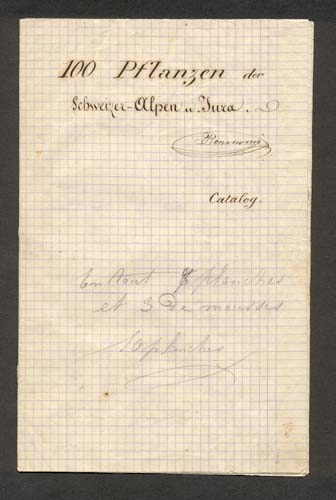 100 Pflanzen der
Schweizer-Alpen u. Jura.
Bononomi
Catalog.
En tout planches
et 3 de mousses
10 planches